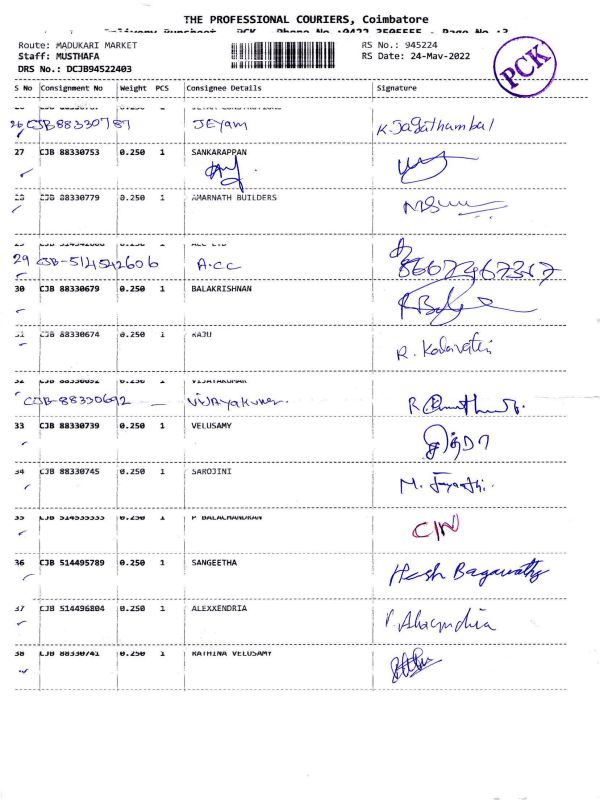 THE PROFESSIONAL COURIERS, Coimbatore
Delivery Runsheet PCK Phone No :0422 3505555 - Page No :3
Route: MADUKARI MARKET
Staff: MUSTHAFA
DRS No.: DCJB94522403
RS No.: 945224
RS Date: 24-Mav-2022
PCK
S No Consignment No Weight PCS Consignee Details Signature
26 CJB 88330787 JEYAM K. Jagathambal
27 CJB 88330753 0.250 1 SANKARAPPAN
28 CJB 88330779 0.250 1 AMARNATH BUILDERS
29 CJB-514542606 A.CC 8667467347
30 CJB 88330679 0.250 1 BALAKRISHNAN
31 CJB 88330674 0.250 1 RAJU
32 CJB 88330692 0.250 1 VIJAYAKUMAR
CJB-88330692 — VIJAYAKUMAR.
33 CJB 88330739 0.250 1 VELUSAMY
34 CJB 88330745 0.250 1 SAROJINI
35 CJB 514535535 0.250 1 P BALACHANDRAN C/N
36 CJB 514495789 0.250 1 SANGEETHA
37 CJB 514496804 0.250 1 ALEXXENDRIA
38 CJB 88330741 0.250 1 RATHINA VELUSAMY